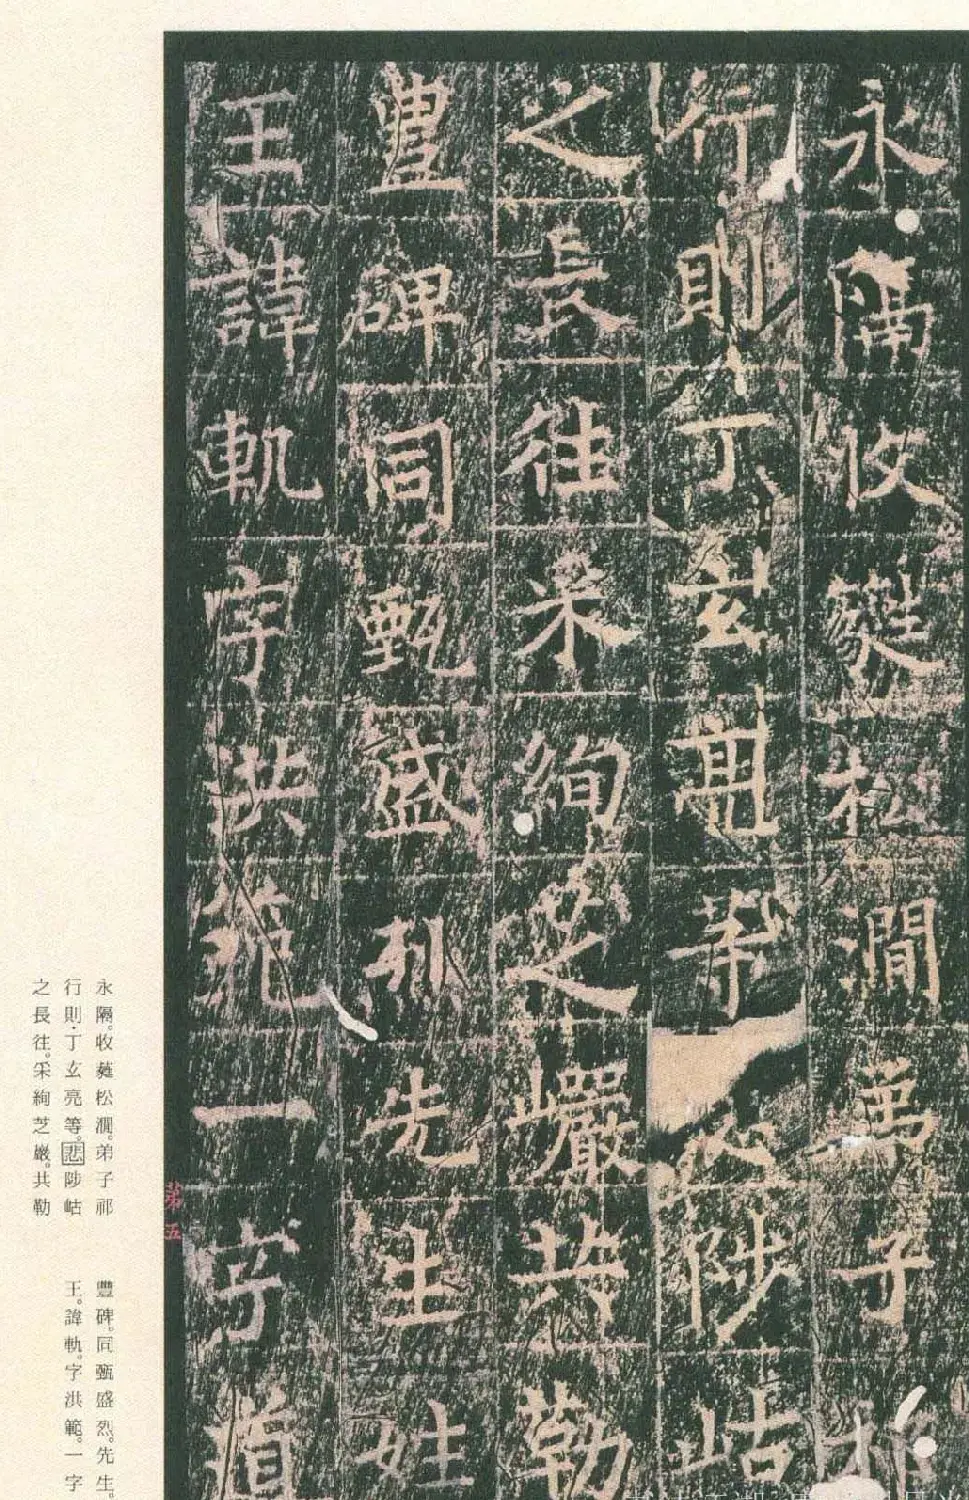 永隔收蕤松澗弟子祁
行則丁玄亮等悲陟岵
之長往采絢芝巖共勒
豊碑同甄盛烈先生姓
王諱軌字洪範一字道
永隔。收蕤松澗。弟子祁
行則·丁玄亮等。悲陟岵
之長往。采絢芝巖。共勒
豐碑。同甄盛烈。先生。
王。諱軌。字洪範。一字
第五